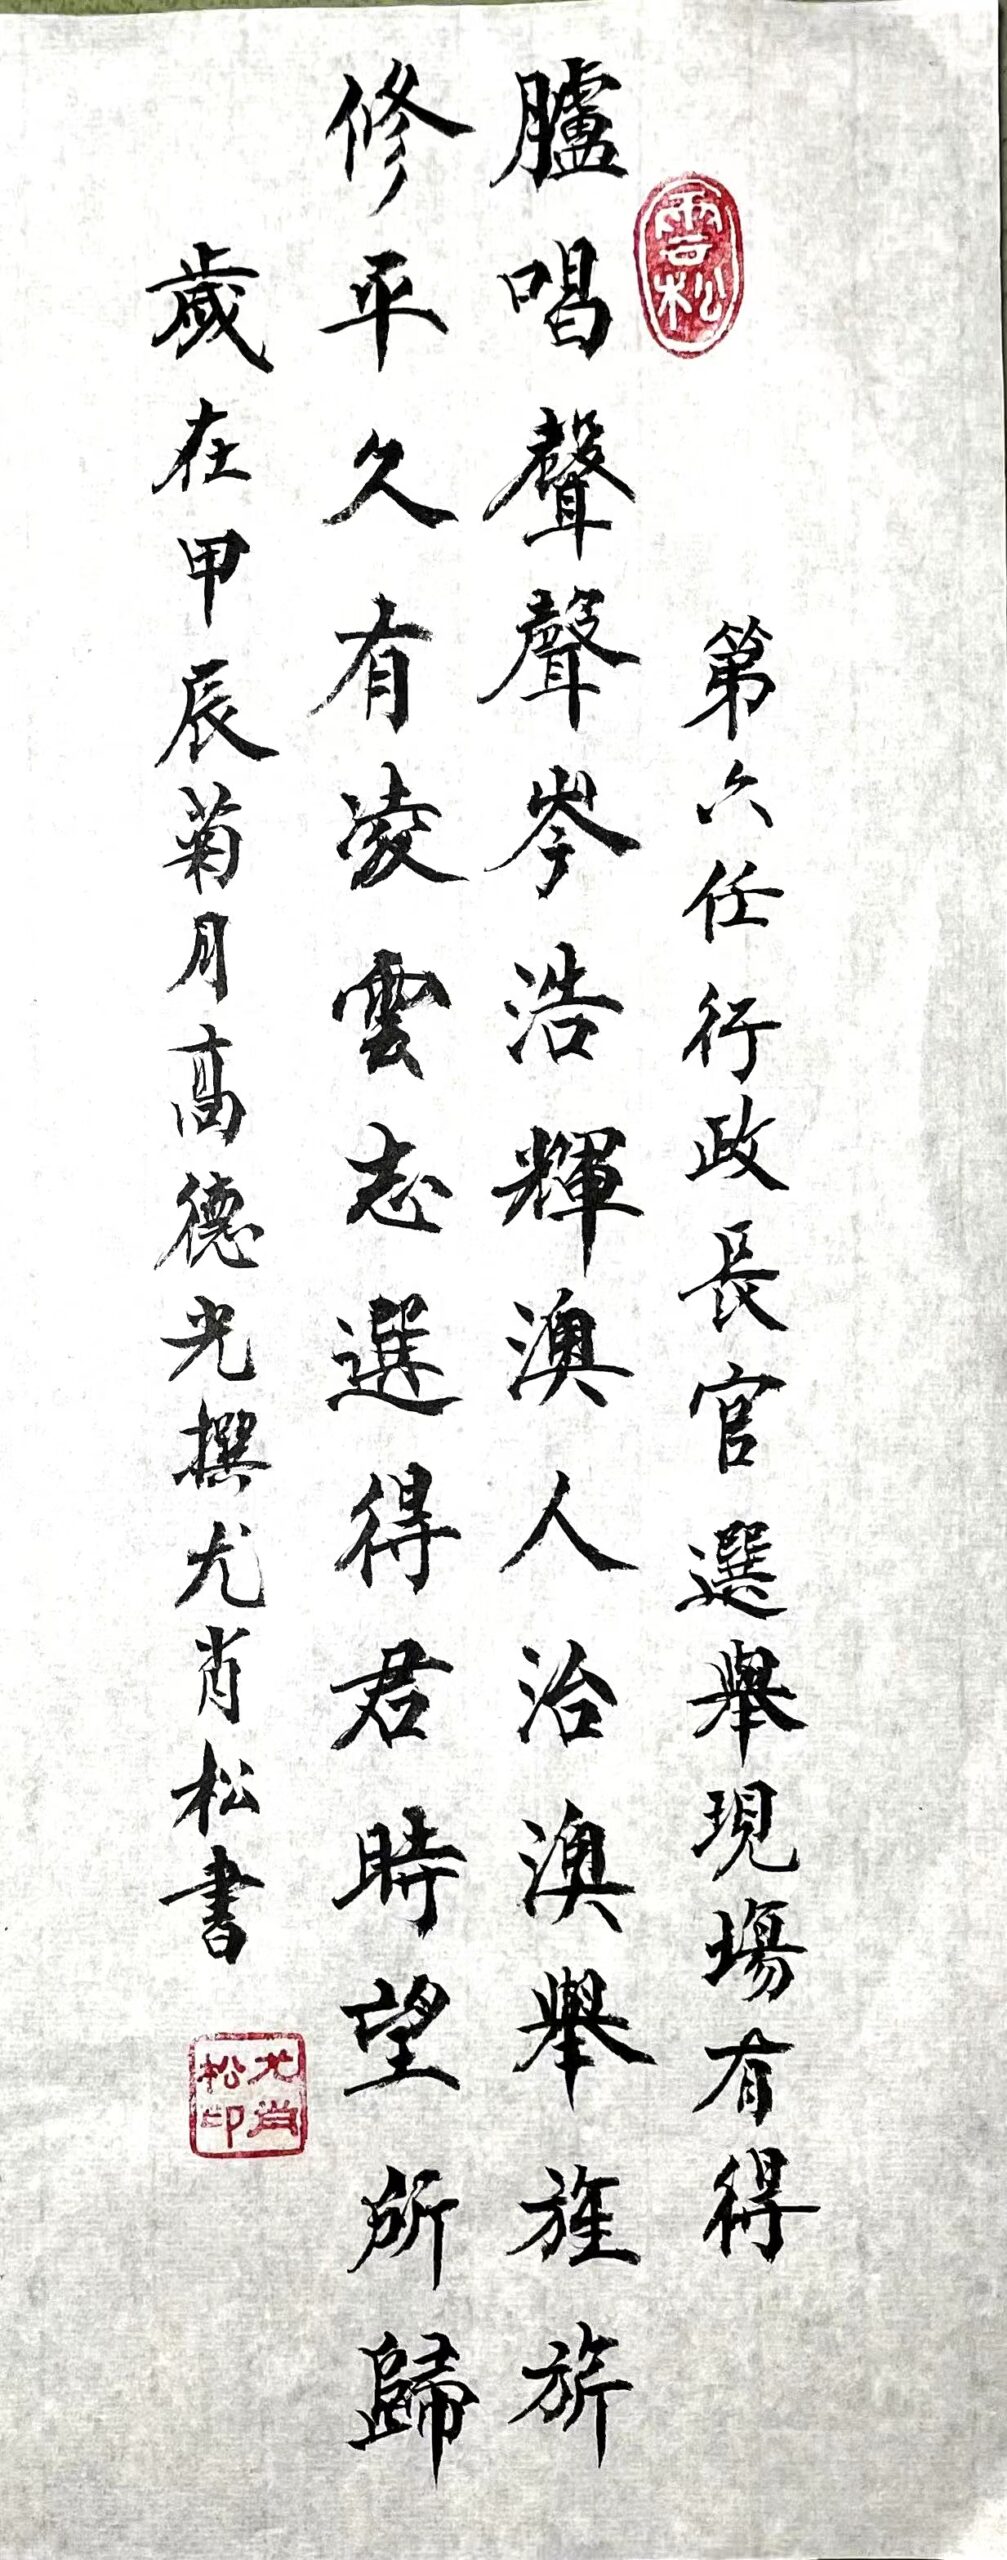 第六任行政長官選舉現場有得
雲松
臚唱聲聲岑浩輝澳人治澳舉旌旂
修平久有凌雲志選得君時望所歸
歲在甲辰菊月高德光撰尤肖松書
尤肖松印